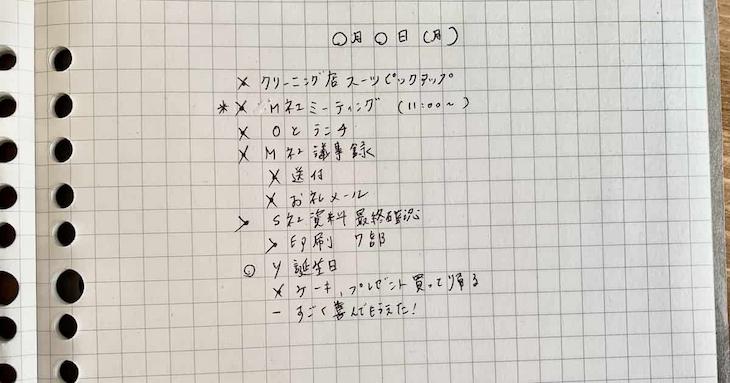 ○月○日(月)
× クリーニング店 スーツピックアップ
* × M社ミーティング (11:00~)
× Oとランチ
× M社 議事録
× 送付
× お礼メール
> S社 資料 最終確認
> 印刷 7部
○ Y 誕生日
× ケーキ、プレゼント買って帰る
- すごく喜んでもらえた!